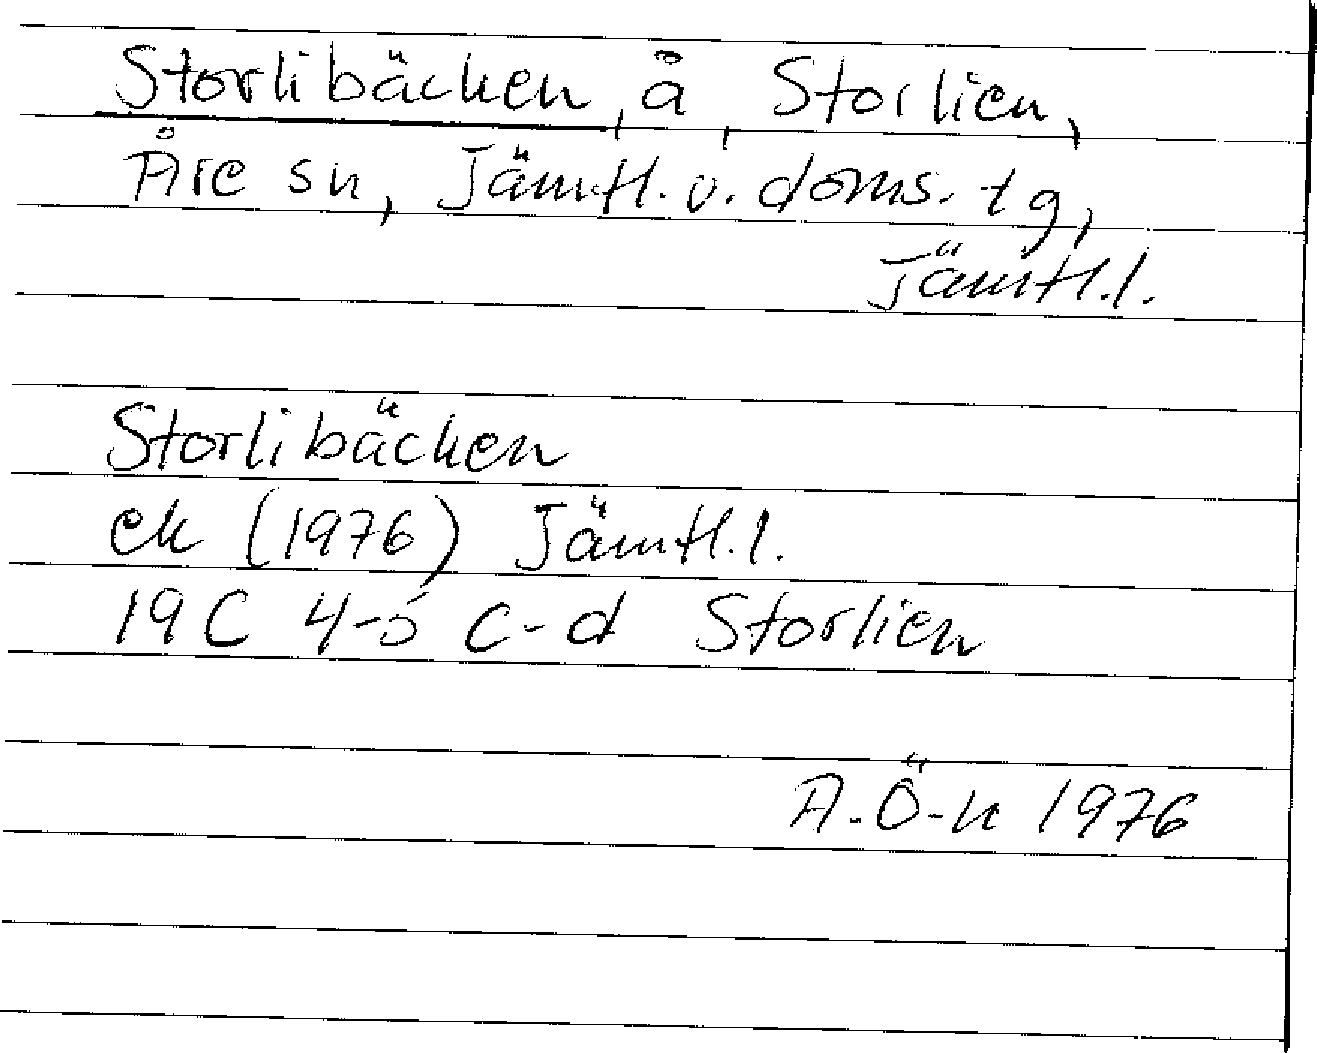 Storlibäcken, å, Storlien,
Åre sn, Jämtl. v. doms. tg,
Jämtl.l.
Storlibäcken
ek (1976) Jämtl.l.
19C 4-5 c-d Storlien
A.Ö-n 1976